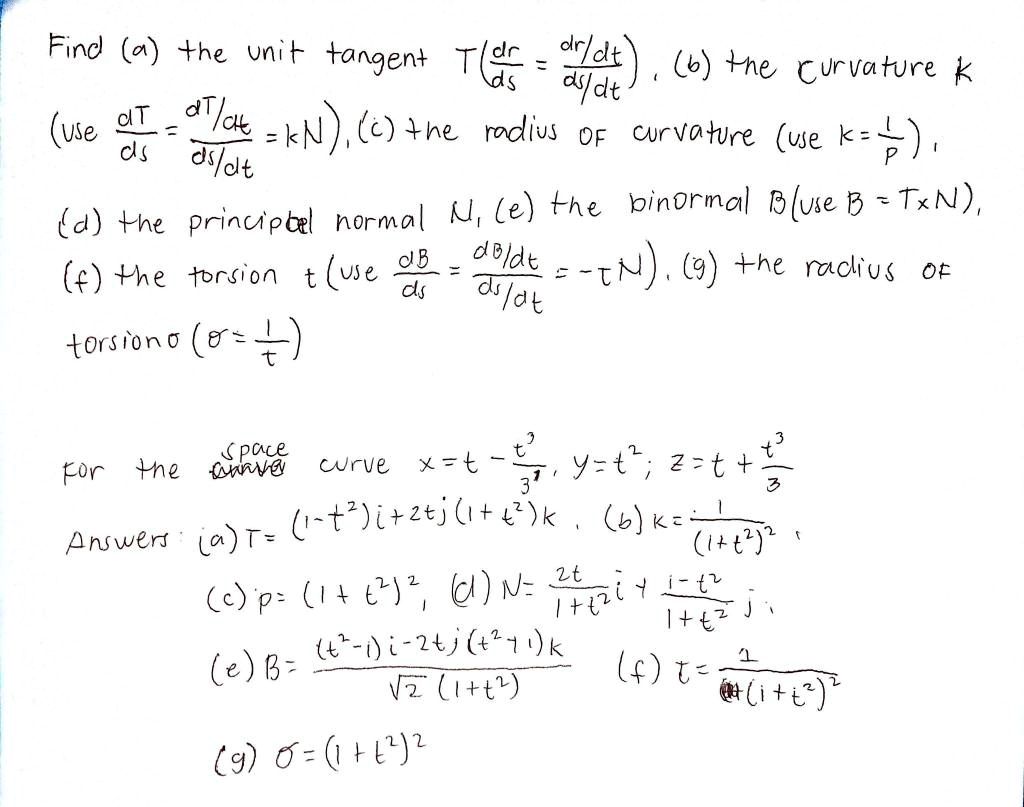 Find (a) the unit tangent T(dr/ds = dr/dt / ds/dt), (b) the curvature k
(use dT/ds = dT/dt / ds/dt = kN), (c) the radius of curvature (use k = 1/p),
(d) the principal normal N, (e) the binormal B (use B = T×N),
(f) the torsion t (use dB/ds = dB/dt / ds/dt = -τN), (g) the radius of
torsion σ (σ = 1/t)
For the space curve x = t - t³/3, y = t²; z = t + t³/3
Answers: (a) T = (1-t²)i + 2tj (1+t²)k, (b) k = 1/(1+t²)²,
(c) p = (1+t²)², (d) N = 2t/1+t² i + 1-t²/1+t² j,
(e) B = (t²-1)i - 2tj (t²+1)k / √2 (1+t²) (f) t = 1/(1+t²)²
(g) σ = (1+t²)²